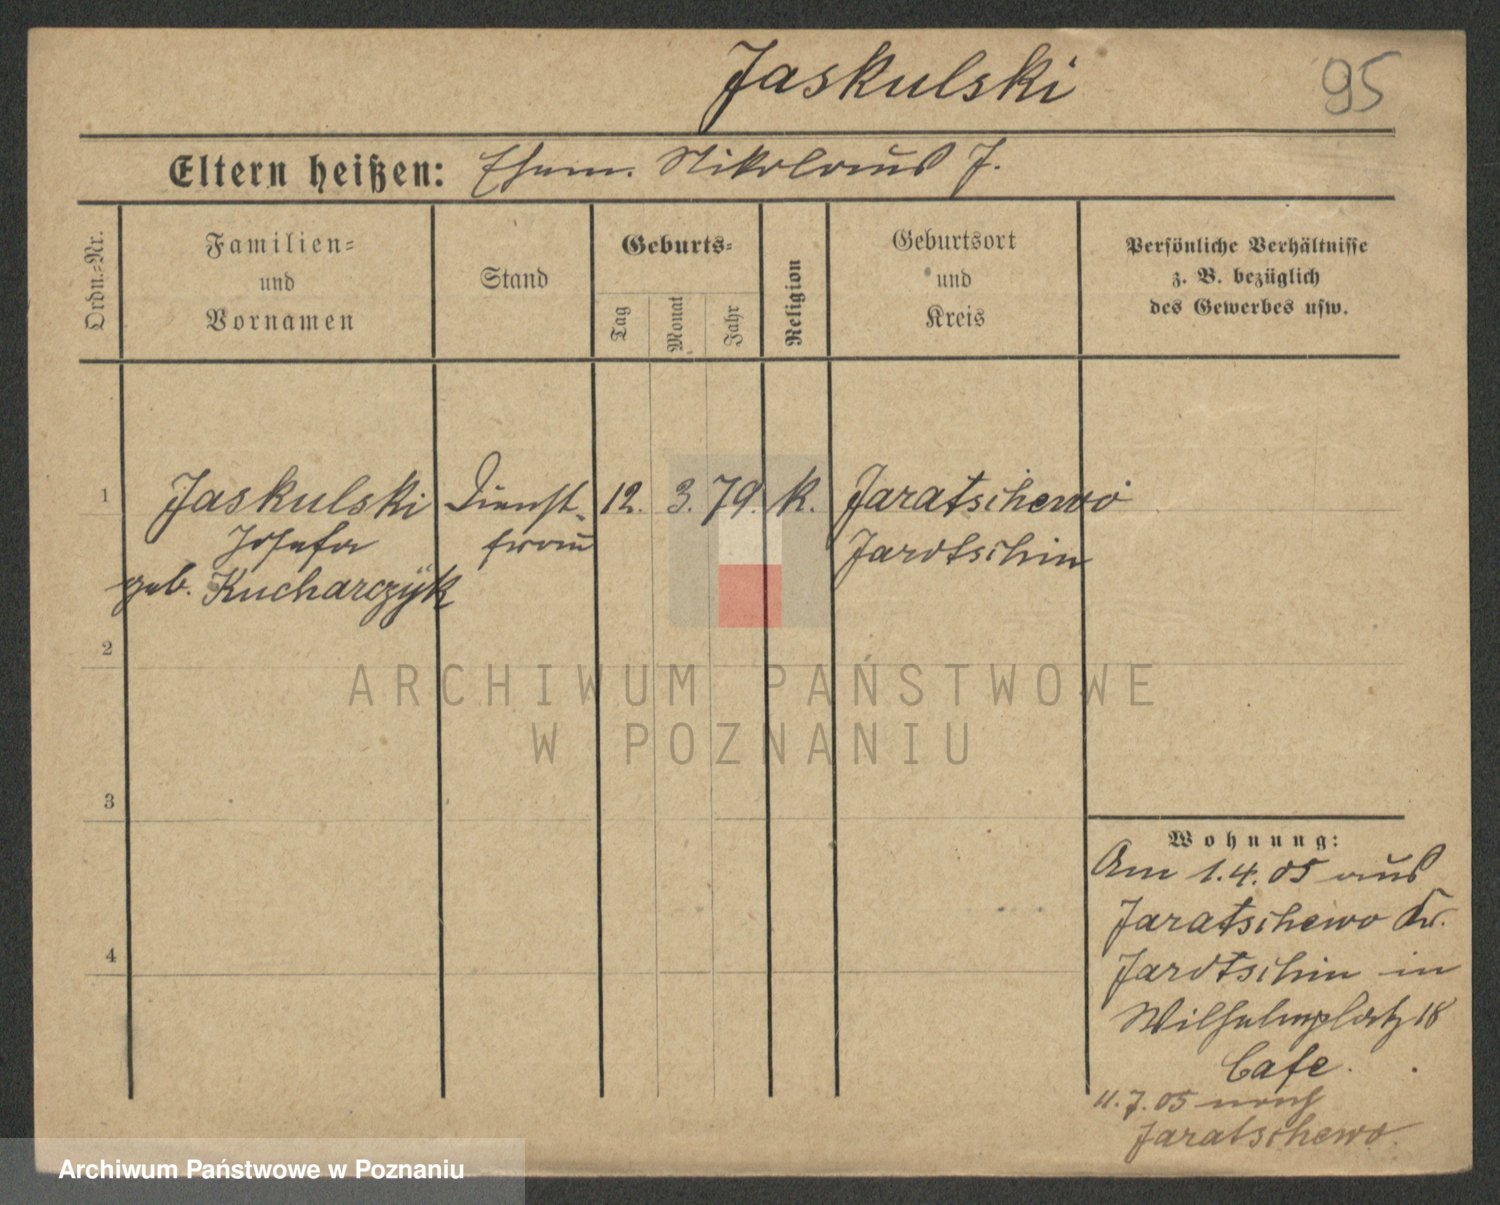 Jaskulski
95
Eltern heißen: Ehem. Nikolaus J.
Ordn.=Nr.
Familien=
und
Vornamen
Stand
Geburts=
Tag
Monat
Jahr
Religion
Geburtsort
und
Kreis
Persönliche Verhältnisse
z. B. bezüglich
des Gewerbes usw.
1 Jaskulski Dienst- 12. 3. 79. k. Jaratschewo
Josefa frau Jarotschin
geb. Kucharczÿk
2
3
4
Wohnung:
Am 1.4.05 aus
Jaratschewo Kr.
Jarotschin in
Wilhelmplatz 18
Cafe.
11.7.05 nach
Jaratschewo.
ARCHIWUM PAŃSTWOWE
W POZNANIU
Archiwum Państwowe w Poznaniu